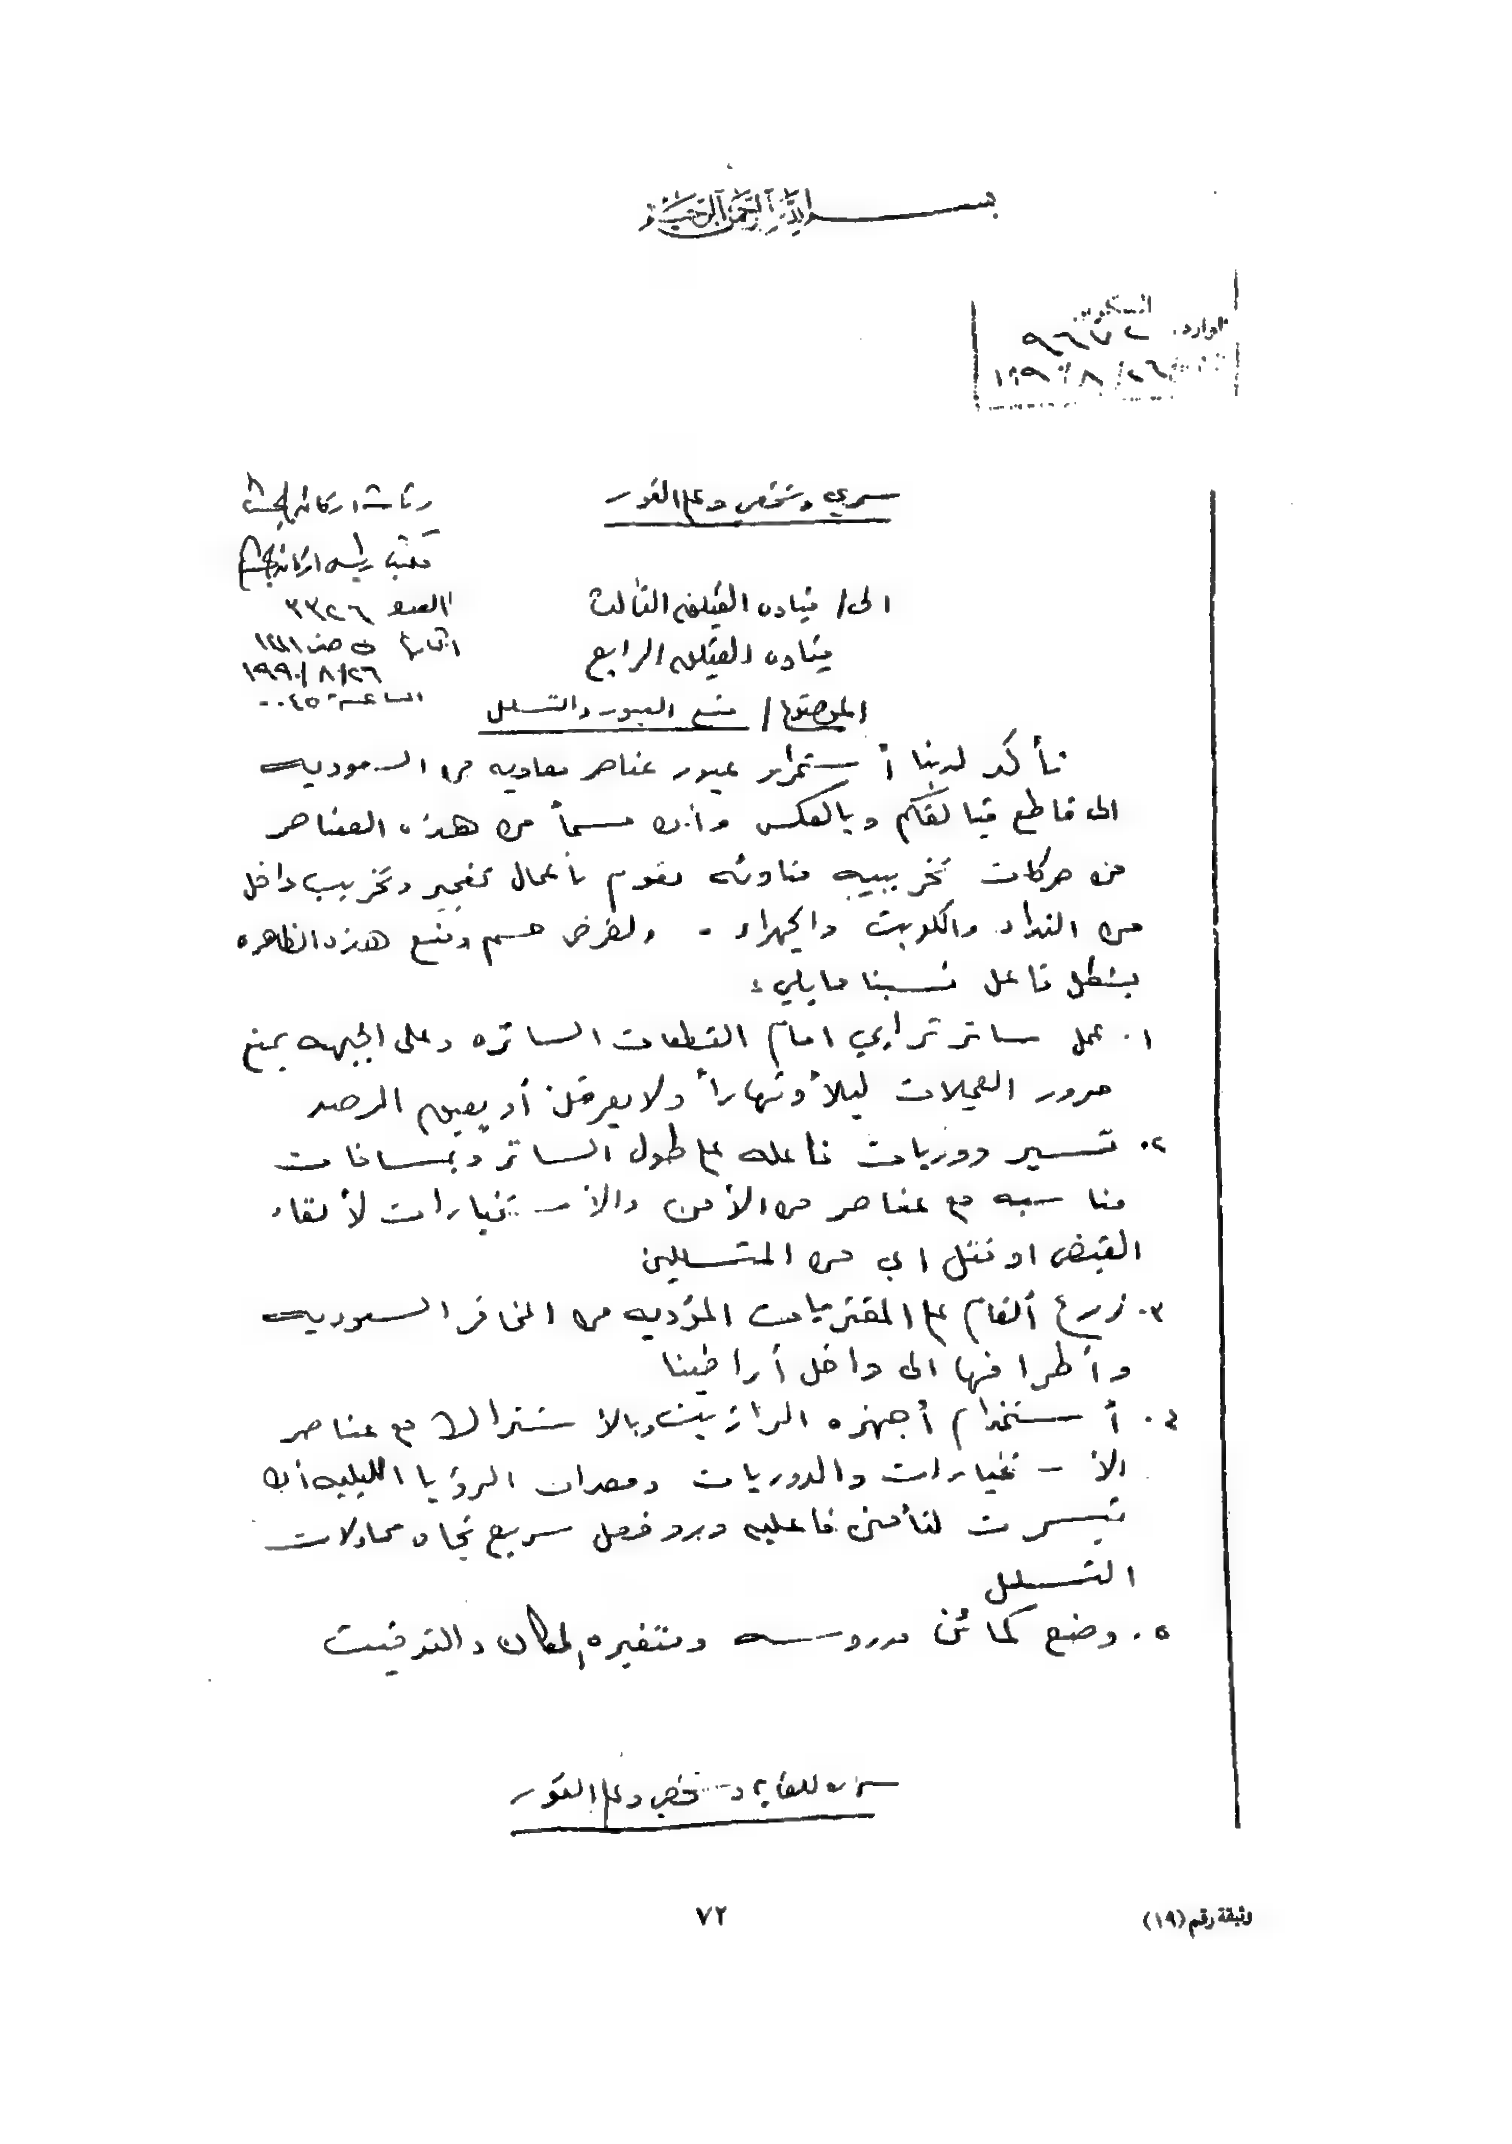 بسم الله الرحمن الرحيم
السكرتير
الوارد ٩٦٧٢
٢٦/٨/١٩٩٠
سري وشخصي وعلى الفور
رئاسة اركان الجيش
مكتب رئيس اركان الجيش
العدد ٣٣٢٦
التاريخ ٥ صفر ١٤١١
٢٦/٨/١٩٩٠
الساعة ٠٠٤٥
الى/ قيادة الفيلق الثالث
قيادة الفيلق الرابع
الموضوع/ منع العبور والتسلل
تأكد لدينا أستمرار عبور عناصر معاديه من السعوديه
الى قاطع قيالقكم وبالعكس وأن قسماً من هذه العناصر
من حركات تخريبيه مناوئه تقوم بأعمال تفجير وتخريب داخل
من النداء والكويت والجهراء . ولغرض حسم ومنع هذه الظاهره
بشكل فاعل نسبنا مايلي :
١. عمل ساتر ترابي امام القطعات الساتره وعلى الجبهه يمنع
مرور العجلات ليلاً ونهاراً ولا يعرقل أو يعيق الرصد
٢. تسيير دوريات فاعله على طول الساتر وبمسافات
مناسبه مع عناصر من الأمن والأستخبارات لألقاء
القبض او قتل اي من المتسللين
٣. زرع ألغام على المقتربات المؤديه من المخافر السعوديه
وأطرافها الى داخل أراضينا
٤. أستخدام أجهزه الرازيت وبالأشتراك مع عناصر
الأستخبارات والدوريات ومعدات الرؤيا الليليه أن
تيسرت لتأمين فاعليه وبرد فعل سريع تجاه محاولات
التسلل
٥. وضع كمائن مدروسه ومتغيره المكان والتوقيت
سري للغايه وشخصي وعلى الفور
٧٢
وثيقة رقم (١٩)